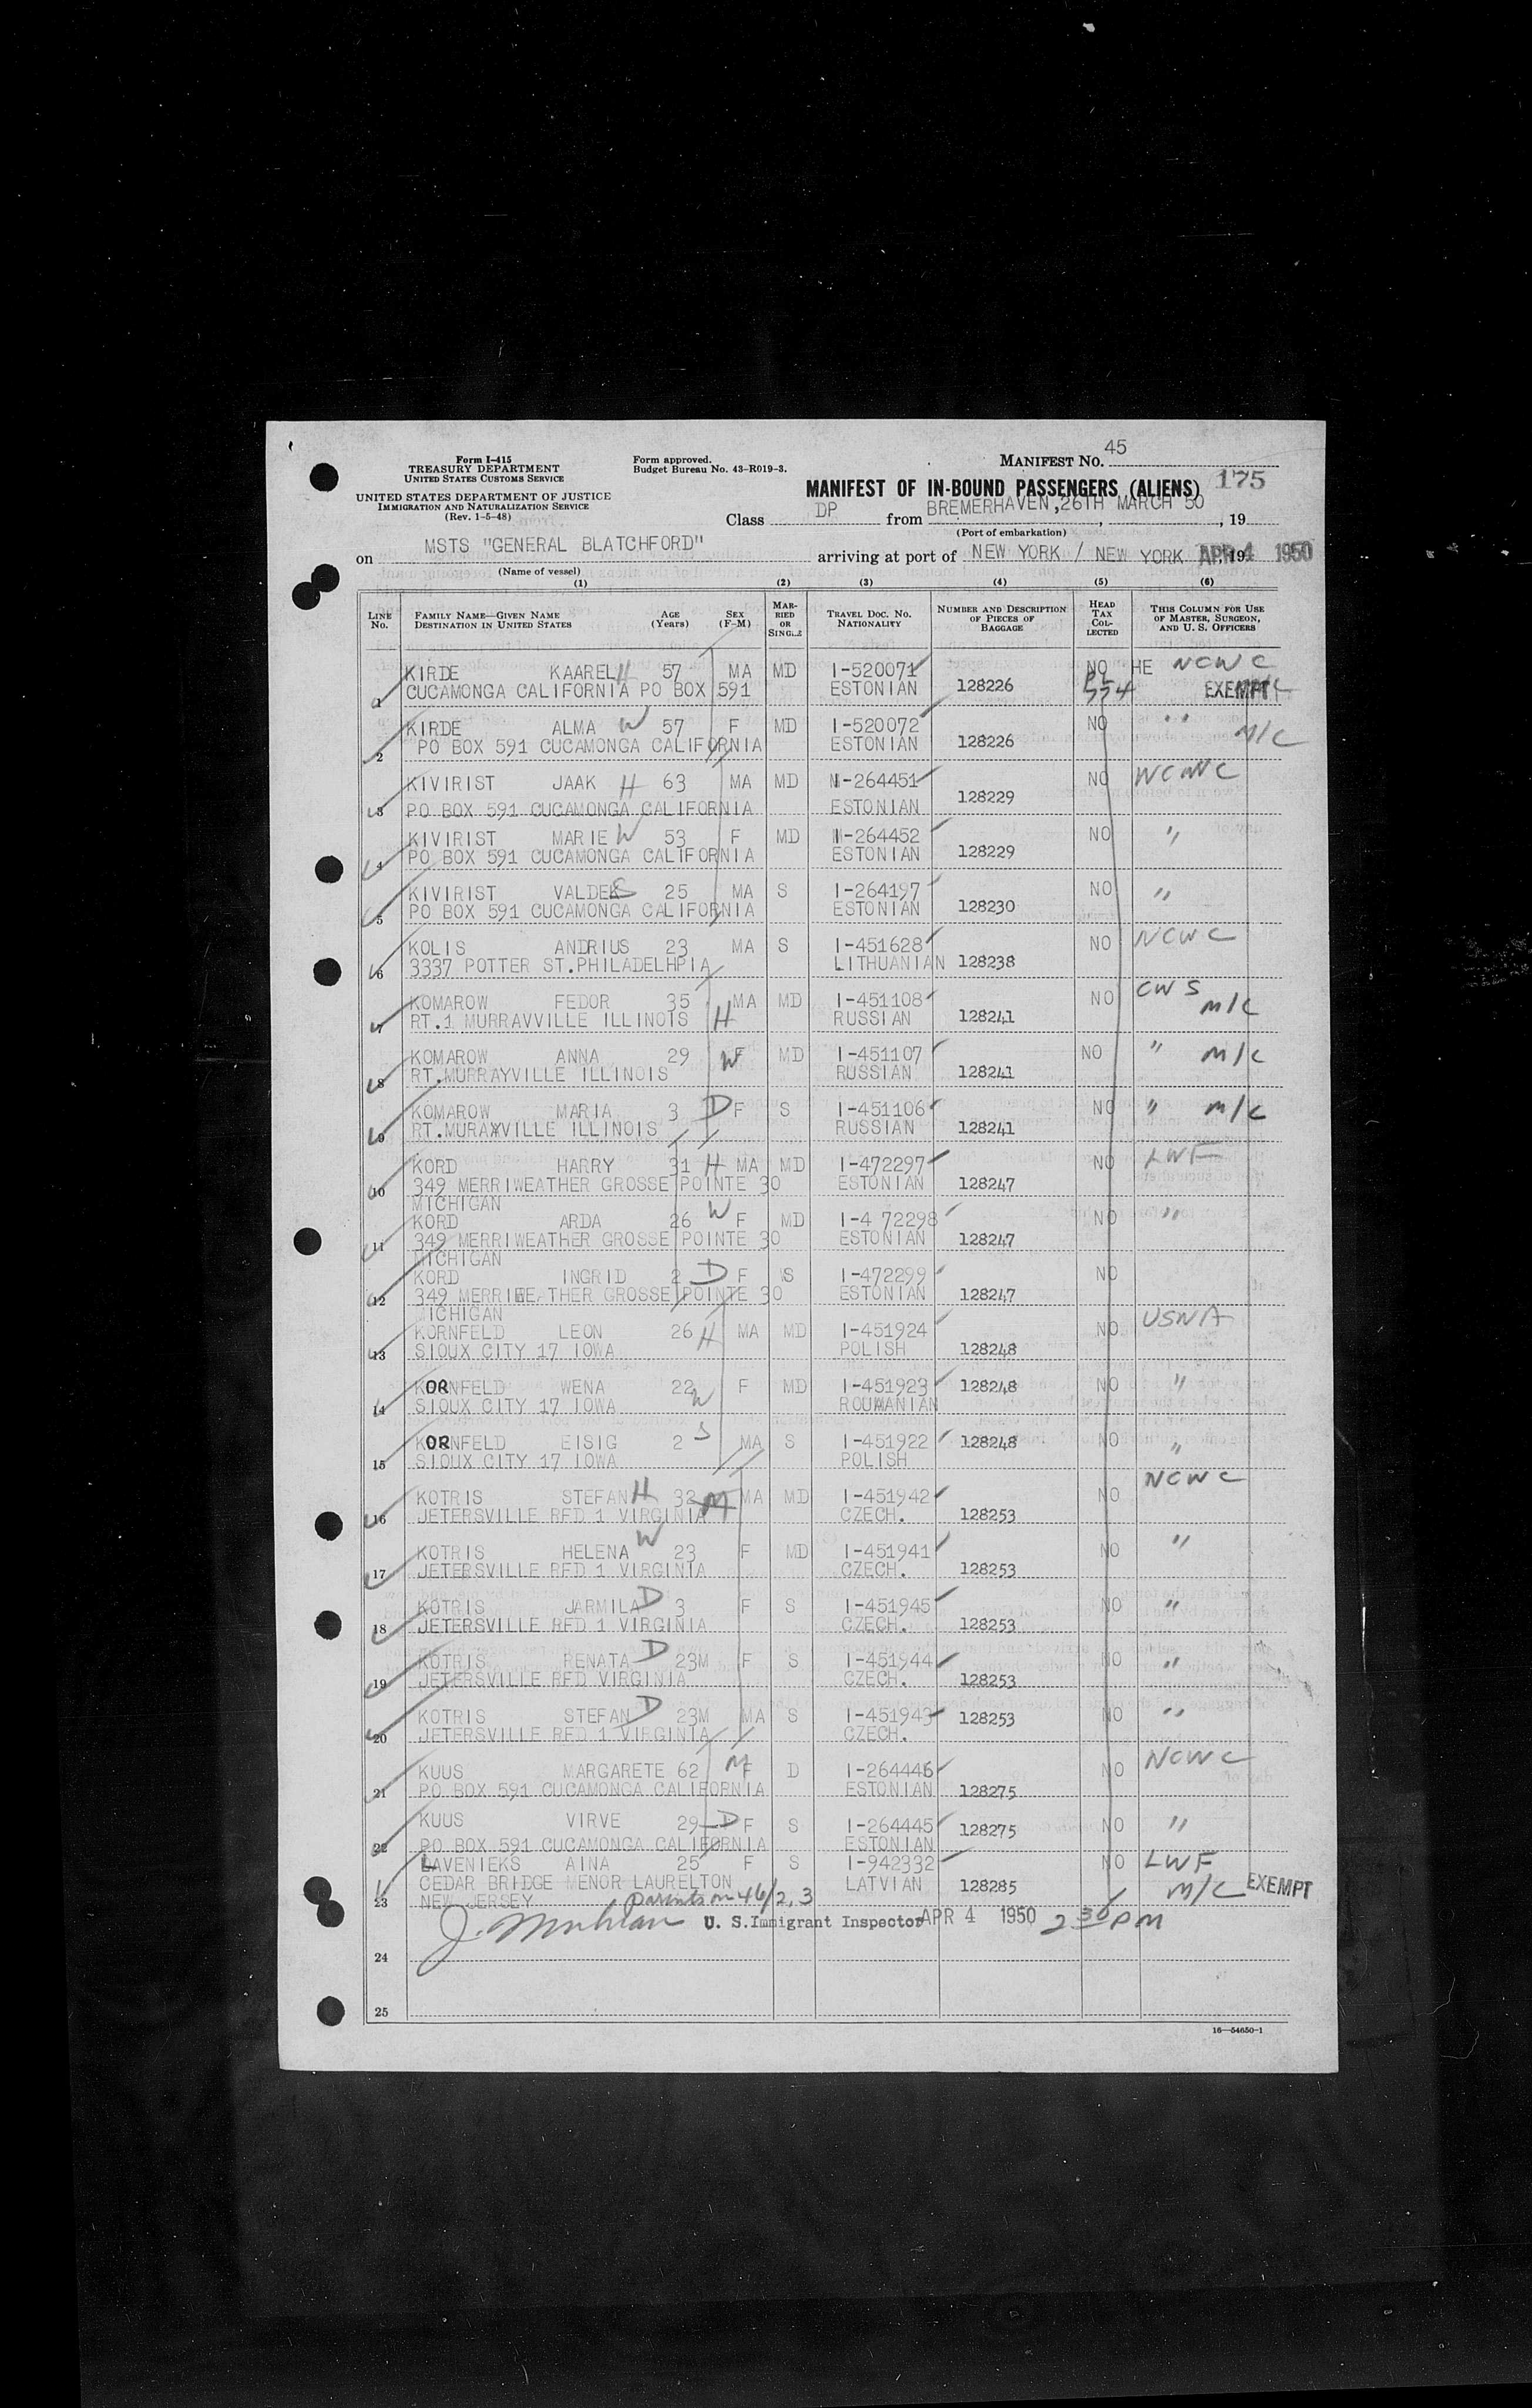 Form I-415
TREASURY DEPARTMENT
UNITED STATES CUSTOMS SERVICE
UNITED STATES DEPARTMENT OF JUSTICE
IMMIGRATION AND NATURALIZATION SERVICE
(Rev. 1-5-48)
Form approved.
Budget Bureau No. 43-R019-3.
MANIFEST NO. 45
175
MANIFEST OF IN-BOUND PASSENGERS (ALIENS)
Class DP from BREMERHAVEN,26TH MARCH 50, 19
(Port of embarkation)
on MSTS "GENERAL BLATCHFORD" arriving at port of NEW YORK / NEW YORK APR 4 1950, 19
(Name of vessel)
(1) (2) (3) (4) (5) (6)
LINE No. FAMILY NAME—GIVEN NAME DESTINATION IN UNITED STATES AGE (Years) SEX (F-M) MARRIED OR SINGLE TRAVEL DOC. NO. NATIONALITY NUMBER AND DESCRIPTION OF PIECES OF BAGGAGE HEAD TAX COLLECTED THIS COLUMN FOR USE OF MASTER, SURGEON, AND U. S. OFFICERS
1 KIRDE KAAREL H 57 MA MD I-520071 NO HE NCWC
CUCAMONGA CALIFORNIA PO BOX 591 ESTONIAN 128226 PL 774 EXEMPT M/C
2 KIRDE ALMA W 57 F MD I-520072 NO "
PO BOX 591 CUCAMONGA CALIFORNIA ESTONIAN 128226 M/C
3 KIVIRIST JAAK H 63 MA MD I-264451 NO NCWC
PO BOX 591 CUCAMONGA CALIFORNIA ESTONIAN 128229
4 KIVIRIST MARIE W 53 F MD I-264452 NO "
PO BOX 591 CUCAMONGA CALIFORNIA ESTONIAN 128229
5 KIVIRIST VALDEK S 25 MA S I-264197 NO "
PO BOX 591 CUCAMONGA CALIFORNIA ESTONIAN 128230
6 KOLIS ANDRIUS 23 MA S I-451628 NO NCWC
3337 POTTER ST.PHILADELHPIA LITHUANIAN 128238
7 KOMAROW FEDOR 35 MA MD I-451108 NO CWS
RT.1 MURRAVVILLE ILLINOIS H RUSSIAN 128241 M/C
8 KOMAROW ANNA 29 W F MD I-451107 NO " M/C
RT.MURRAYVILLE ILLINOIS RUSSIAN 128241
9 KOMAROW MARIA 3 D F S I-451106 NO " M/C
RT.MURAYVILLE ILLINOIS RUSSIAN 128241
10 KORD HARRY 31 H MA MD I-472297 NO LWF
349 MERRIWEATHER GROSSE POINTE 30 ESTONIAN 128247
MICHIGAN
11 KORD ARDA 26 W F MD I-4 72298 NO "
349 MERRIWEATHER GROSSE POINTE 30 ESTONIAN 128247
MICHIGAN
12 KORD INGRID 2 D F S I-472299 NO
349 MERRIWEATHER GROSSE POINTE 30 ESTONIAN 128247
MICHIGAN
13 KORNFELD LEON 26 H MA MD I-451924 NO USNA
SIOUX CITY 17 IOWA POLISH 128248
14 KORNFELD WENA 22 W F MD I-451923 128248 NO "
SIOUX CITY 17 IOWA ROUMANIAN
15 KORNFELD EISIG 2 S MA S I-451922 128248 NO "
SIOUX CITY 17 IOWA POLISH
16 KOTRIS STEFAN H 32 M MA MD I-451942 NO NCWC
JETERSVILLE RFD 1 VIRGINIA CZECH. 128253
17 KOTRIS HELENA W 23 F MD I-451941 NO "
JETERSVILLE RFD 1 VIRGINIA CZECH. 128253
18 KOTRIS JARMILA D 3 F S I-451945 NO "
JETERSVILLE RFD 1 VIRGINIA CZECH. 128253
19 KOTRIS RENATA D 23M F S I-451944 NO "
JETERSVILLE RFD VIRGINIA CZECH. 128253
20 KOTRIS STEFAN D 23M MA S I-451943 128253 NO "
JETERSVILLE RFD 1 VIRGINIA CZECH.
21 KUUS MARGARETE 62 M F D I-264446 NO NCWC
PO BOX 591 CUCAMONGA CALIFORNIA ESTONIAN 128275
22 KUUS VIRVE 29 D F S I-264445 128275 NO "
PO BOX 591 CUCAMONGA CALIFORNIA ESTONIAN
23 LAVENIEKS AINA 25 F S I-942332 NO LWF
CEDAR BRIDGE MENOR LAURELTON LATVIAN 128285 M/C EXEMPT
NEW JERSEY parents on 46/2,3
U. S.Immigrant Inspector APR 4 1950 2 30 PM
24
25
16—54650-1